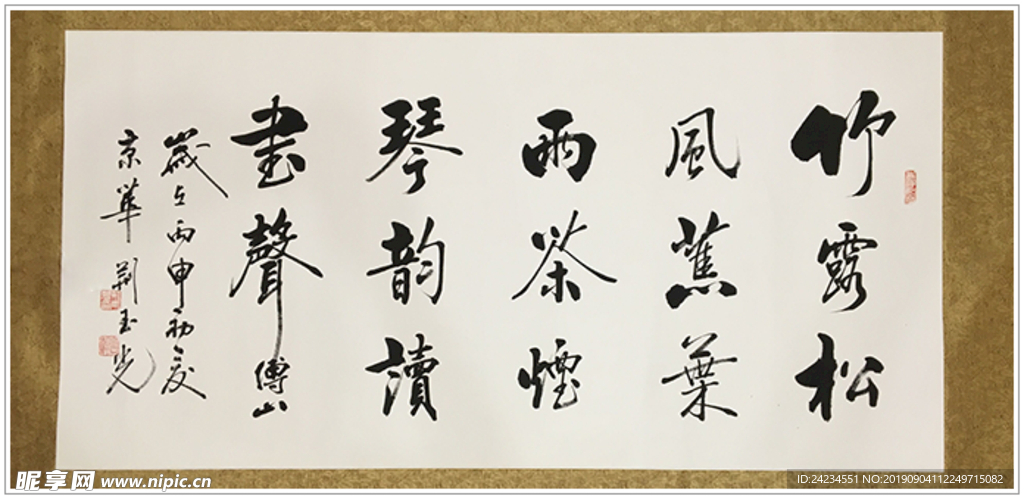 竹露松
風蕉葉
雨茶煙
琴韵讀
書聲 傅山
歲在丙申初夏
京華 荆玉光
昵享网 www.nipic.cn
ID:24234551 NO:20190904112249715082